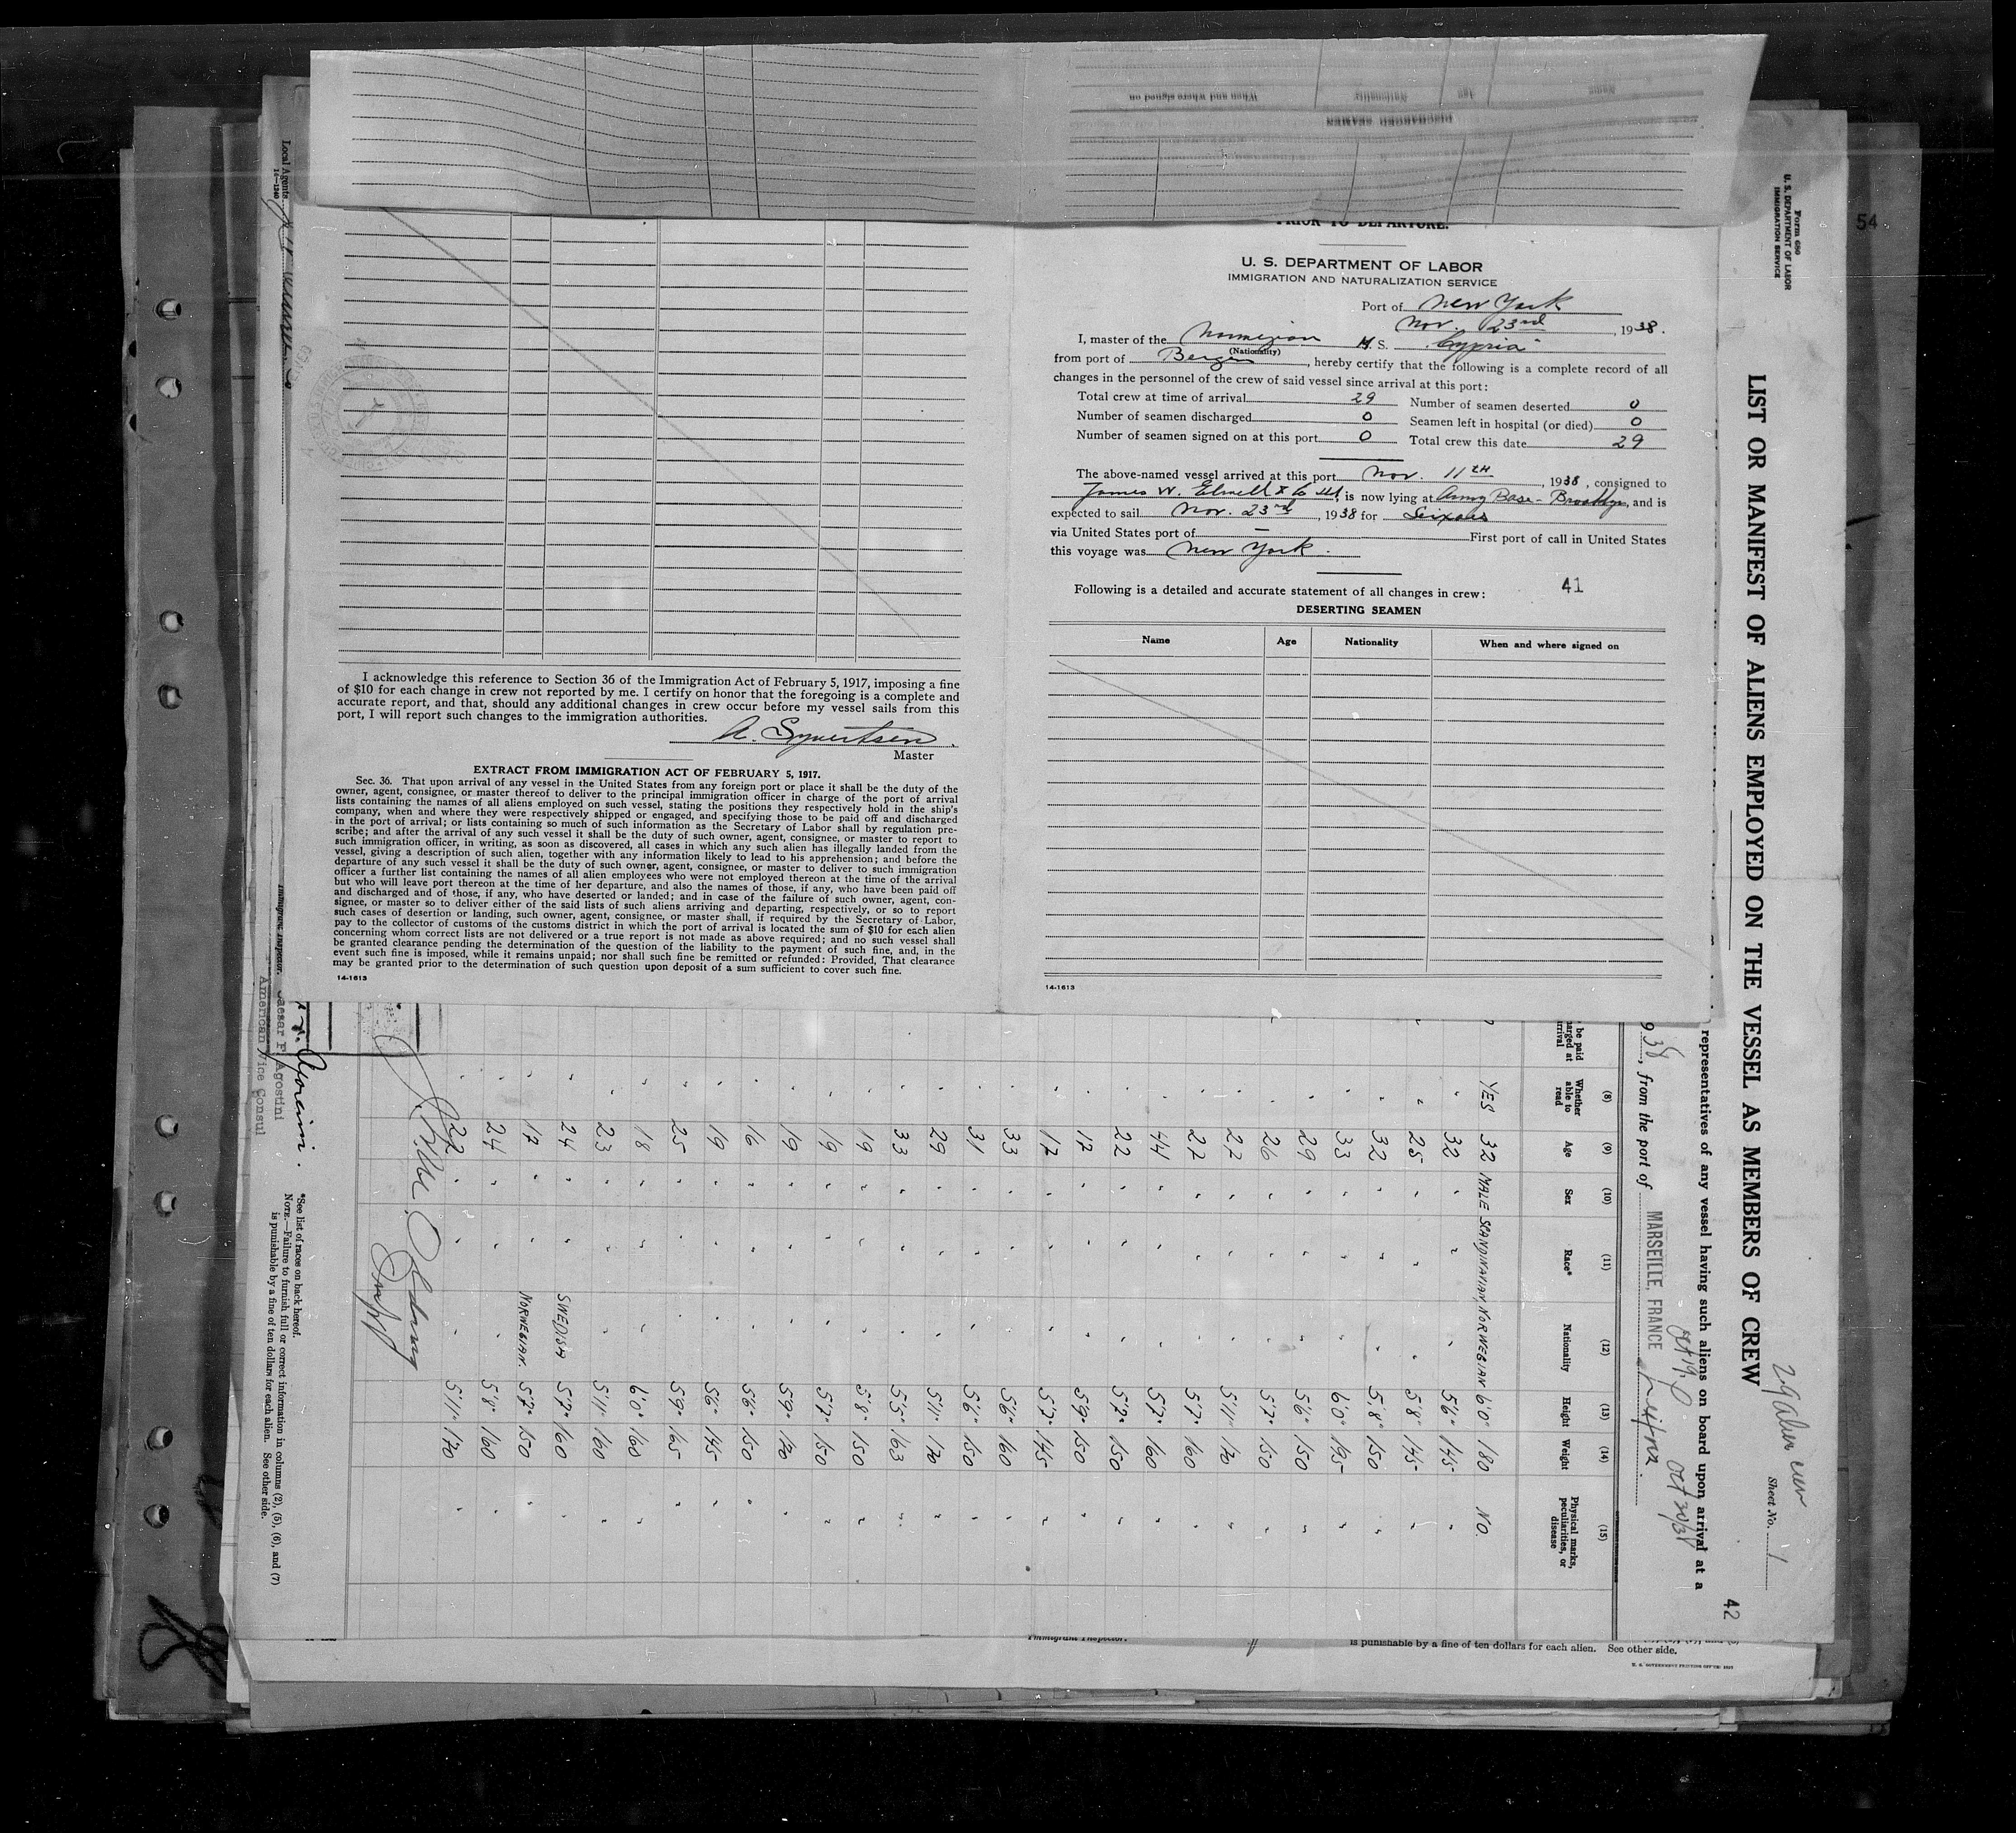 When and where signed on
Nationality
Age
Name
DISCHARGED SEAMEN
PRIOR TO DEPARTURE.
U. S. DEPARTMENT OF LABOR
IMMIGRATION AND NATURALIZATION SERVICE
Port of New York
Nov. 23rd, 1938.
I, master of the Norwegian M. S. "Cypria"
(Nationality)
from port of Bergen, hereby certify that the following is a complete record of all
changes in the personnel of the crew of said vessel since arrival at this port:
Total crew at time of arrival 29 Number of seamen deserted 0
Number of seamen discharged 0 Seamen left in hospital (or died) 0
Number of seamen signed on at this port 0 Total crew this date 29
The above-named vessel arrived at this port Nov. 11TH, 1938, consigned to
James W. Elwell & Co is now lying at Army Base - Brooklyn, and is
expected to sail Nov. 23rd, 1938 for
via United States port of — First port of call in United States
this voyage was New York.
Following is a detailed and accurate statement of all changes in crew:
41
DESERTING SEAMEN
Name Age Nationality When and where signed on
14-1613
I acknowledge this reference to Section 36 of the Immigration Act of February 5, 1917, imposing a fine
of $10 for each change in crew not reported by me. I certify on honor that the foregoing is a complete and
accurate report, and that, should any additional changes in crew occur before my vessel sails from this
port, I will report such changes to the immigration authorities.
A. Syvertsen.
Master
EXTRACT FROM IMMIGRATION ACT OF FEBRUARY 5, 1917.
Sec. 36. That upon arrival of any vessel in the United States from any foreign port or place it shall be the duty of the
owner, agent, consignee, or master thereof to deliver to the principal immigration officer in charge of the port of arrival
lists containing the names of all aliens employed on such vessel, stating the positions they respectively hold in the ship's
company, when and where they were respectively shipped or engaged, and specifying those to be paid off and discharged
in the port of arrival; or lists containing so much of such information as the Secretary of Labor shall by regulation pre-
scribe; and after the arrival of any such vessel it shall be the duty of such owner, agent, consignee, or master to report to
such immigration officer, in writing, as soon as discovered, all cases in which any such alien has illegally landed from the
vessel, giving a description of such alien, together with any information likely to lead to his apprehension; and before the
departure of any such vessel it shall be the duty of such owner, agent, consignee, or master to deliver to such immigration
officer a further list containing the names of all alien employees who were not employed thereon at the time of the arrival
but who will leave port thereon at the time of her departure, and also the names of those, if any, who have been paid off
and discharged and of those, if any, who have deserted or landed; and in case of the failure of such owner, agent, con-
signee, or master so to deliver either of the said lists of such aliens arriving and departing, respectively, or so to report
such cases of desertion or landing, such owner, agent, consignee, or master shall, if required by the Secretary of Labor,
pay to the collector of customs of the customs district in which the port of arrival is located the sum of $10 for each alien
concerning whom correct lists are not delivered or a true report is not made as above required; and no such vessel shall
be granted clearance pending the determination of the question of the liability to the payment of such fine, and, in the
event such fine is imposed, while it remains unpaid; nor shall such fine be remitted or refunded: Provided, That clearance
may be granted prior to the determination of such question upon deposit of a sum sufficient to cover such fine.
14-1613
54
Form 680
U. S. DEPARTMENT OF LABOR
IMMIGRATION SERVICE
LIST OR MANIFEST OF ALIENS EMPLOYED ON THE VESSEL AS MEMBERS OF CREW
29 alien crew
Sheet No. 1
42
representatives of any vessel having such aliens on board upon arrival at a
Oct 19, Oct 20/38
38, from the port of MARSEILLE, FRANCE
(8) (9) (10) (11) (12) (13) (14) (15)
be paid
arged at
rrival
Whether able to read Age Sex Race* Nationality Height Weight Physical marks, peculiarities, or disease
YES 32 MALE SCANDINAVIAN NORWEGIAN 6'0" 180 NO.
" 32 " " " 5'6" 145 "
" 25 " " " 5'8" 145 "
" 32 " " " 5'8" 150 "
" 33 " " " 6'0" 195 "
" 29 " " " 5'6" 150 "
" 26 " " " 5'7" 150 "
" 27 " " " 5'11" 170 "
" 27 " " " 5'7" 160 "
" 44 " " " 5'7" 160 "
" 22 " " " 5'7" 150 "
" 17 " " " 5'9" 150 "
" 17 " " " 5'7" 145 "
" 33 " " " 5'6" 160 "
" 31 " " " 5'6" 150 "
" 29 " " " 5'11" 170 "
" 33 " " " 5'5" 163 "
" 19 " " " 5'8" 150 "
" 19 " " " 5'7" 150 "
" 19 " " " 5'9" 170 "
" 16 " " " 5'6" 150 "
" 19 " " " 5'6" 145 "
" 25 " " " 5'9" 165 "
" 18 " " " 6'0" 160 "
" 23 " " " 5'11" 160 "
" 24 " " SWEDISH 5'7" 160
" 17 " " NORWEGIAN. 5'7" 150 "
" 24 " " " 5'8" 160 "
" 22 " " " 5'11" 170 "
*See list of races on back hereof.
NOTE.—Failure to furnish full or correct information in columns (2), (5), (6), and (7)
is punishable by a fine of ten dollars for each alien. See other side.
Caesar F Agostini
American Vice Consul
Immigrant Inspector.
Local Agents
14-1240
Immigrant Inspector.
is punishable by a fine of ten dollars for each alien. See other side.
U. S. GOVERNMENT PRINTING OFFICE